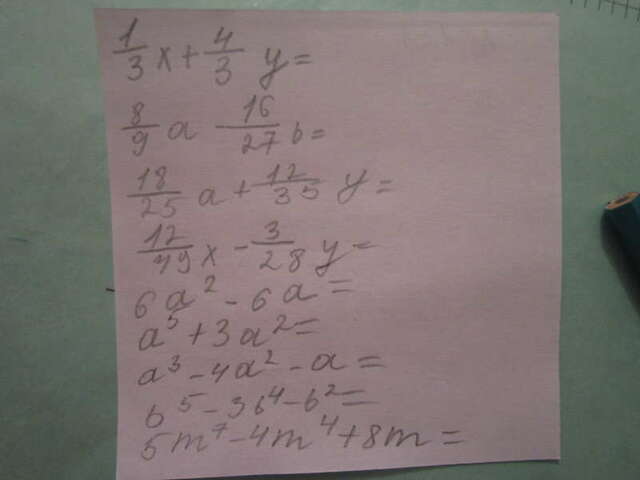 1/3 x + 4/3 y =
8/9 a - 16/27 b =
18/25 a + 12/35 y =
12/49 x - 3/28 y =
6a² - 6a =
a⁵ + 3a² =
a³ - 4a² - a =
b⁵ - 3b⁴ - b² =
5m⁷ - 4m⁴ + 8m =